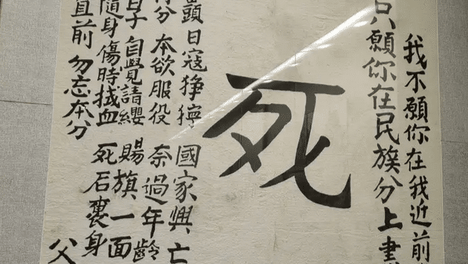 我不願你在我近前
只願你在民族分上
死
頭 日寇猙獰 國家興亡
分 本欲服役 奈過年齡
子 自覺請纓 賜旗一面
隨身 傷時拭血 死后裹身
直前 勿忘本分 父